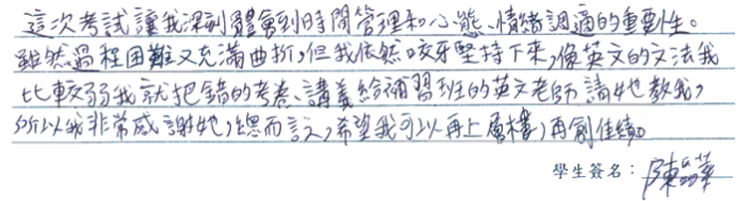 這次考試讓我深刻體會到時間管理和心態、情緒調適的重要性。
雖然過程困難又充滿曲折,但我依然咬牙堅持下來,像英文的文法我
比較弱我就把錯的考卷、講義給補習班的英文老師請她教我,
所以我非常感謝她,總而言之,希望我可以再上層樓,再創佳績。
學生簽名:陳